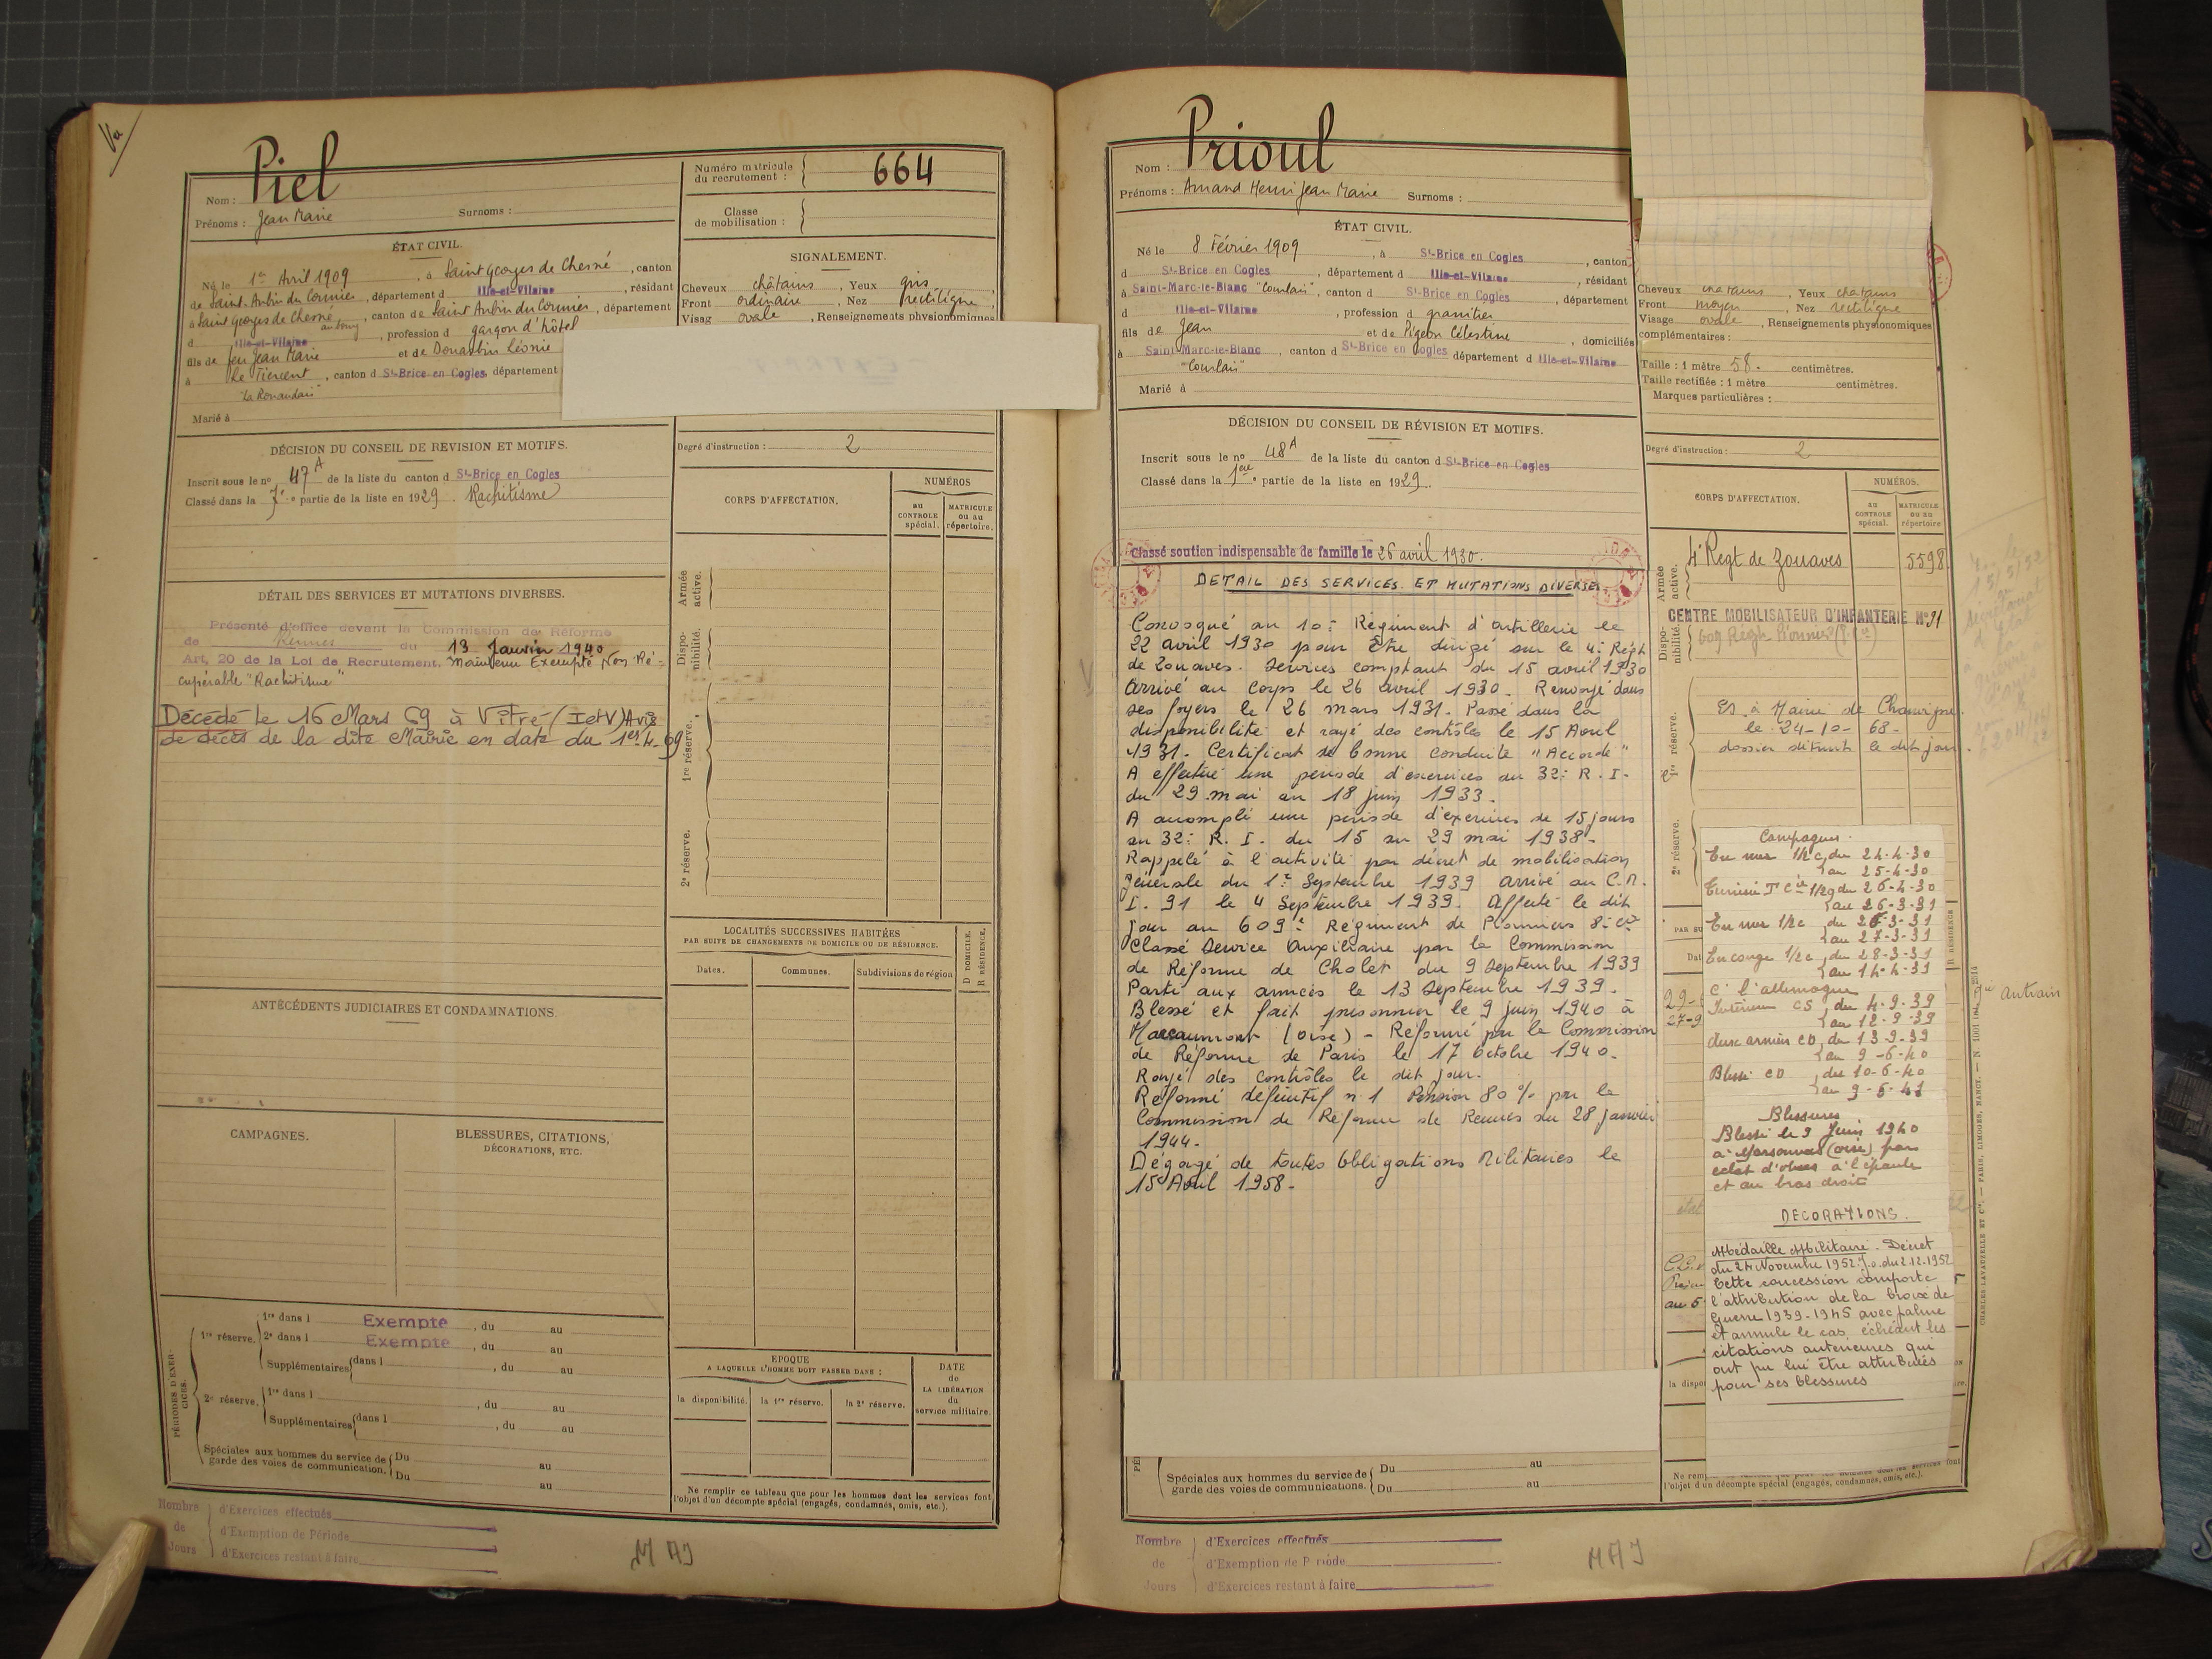 Vu
Nom : Piel
Prénoms : Jean Marie Surnoms :
Numéro matricule
du recrutement : 664
Classe
de mobilisation :
ÉTAT CIVIL.
Né le 1er Avril 1909, à Saint Georges de Chesné, canton
de Saint-Aubin du Cormier, département d Ille-et-Vilaine, résidant
à Saint Georges de Chesné, canton de Saint Aubin du Cormier, département
au bourg
d Ille-et-Vilaine, profession d garçon d'hôtel
fils de feu Jean Marie et de Douarbin Léonie
à Le Tiercent, canton d St-Brice en Cogles, département
"La Ronaudais"
Marié à
SIGNALEMENT.
Cheveux châtains, Yeux gris,
Front ordinaire, Nez rectiligne,
Visag ovale, Renseignements physionomiques
DÉCISION DU CONSEIL DE REVISION ET MOTIFS.
Inscrit sous le no 47 A de la liste du canton d St-Brice en Cogles
Classé dans la 7e partie de la liste en 1929. Rachitisme
Degré d'instruction : 2
CORPS D'AFFECTATION.
NUMÉROS
au
CONTROLE
spécial.
MATRICULE
ou au
répertoire.
DÉTAIL DES SERVICES ET MUTATIONS DIVERSES.
Présenté d'office devant la Commission de Réforme
de Rennes du 13 Janvier 1940
Art. 20 de la Loi de Recrutement. Maintenu Exempté Non Ré-
cupérable "Rachitisme"
Décédé le 16 Mars 69 à Vitré (I et V) Avis
de décès de la dite Mairie en date du 1er-4-69
Armée
active.
Dispo-
nibilité.
1re réserve.
2e réserve.
LOCALITÉS SUCCESSIVES HABITÉES
PAR SUITE DE CHANGEMENTS DE DOMICILE OU DE RÉSIDENCE.
Dates.
Communes.
Subdivisions de région
D DOMICILE.
R RÉSIDENCE.
ANTÉCÉDENTS JUDICIAIRES ET CONDAMNATIONS.
CAMPAGNES.
BLESSURES, CITATIONS,
DÉCORATIONS, ETC.
PÉRIODES D'EXER-
CICES.
1re réserve.
1re dans l Exempté, du au
2e dans l Exempté, du au
Supplémentaires dans l, du au
2e réserve.
1re dans l, du au
Supplémentaires dans l, du au
Spéciales aux hommes du service de
garde des voies de communication.
Du au
Du au
EPOQUE
A LAQUELLE L'HOMME DOIT PASSER DANS :
la disponibilité.
la 1re réserve.
la 2e réserve.
DATE
de
LA LIBÉRATION
du
service militaire.
Ne remplir ce tableau que pour les hommes dont les services font
l'objet d'un décompte spécial (engagés, condamnés, omis, etc.).
Nombre
de
Jours
d'Exercices effectués
d'Exemption de Période
d'Exercices restant à faire
MAJ
Nom : Prioul
Prénoms : Amand Henri Jean Marie Surnoms :
ÉTAT CIVIL.
Né le 8 Février 1909, à St-Brice en Cogles, canton
d St-Brice en Cogles, département d Ille-et-Vilaine, résidant
à Saint-Marc-le-Blanc "Courlais", canton d St-Brice en Cogles, département
d Ille-et-Vilaine, profession d granitier
fils de Jean et de Pigeon Célestine, domiciliés
à Saint-Marc-le-Blanc, canton d St-Brice en Cogles département d Ille-et-Vilaine
"Courlais"
Marié à
Cheveux chatains, Yeux chatains
Front moyen, Nez rectiligne
Visage ovale, Renseignements physionomiques
complémentaires :
Taille : 1 mètre 58. centimètres.
Taille rectifiée : 1 mètre centimètres.
Marques particulières :
DÉCISION DU CONSEIL DE RÉVISION ET MOTIFS.
Inscrit sous le no 48 A de la liste du canton d St-Brice en Cogles
Classé dans la 1ère partie de la liste en 1929.
Classé soutien indispensable de famille le 26 avril 1930.
Degré d'instruction : 2
CORPS D'AFFECTATION.
NUMÉROS.
au
CONTROLE
spécial.
MATRICULE
ou au
répertoire
Armée
active.
4e Regt de Zouaves 5598
CENTRE MOBILISATEUR D'INFANTERIE No 91
Dispo-
nibilité.
609 Régt Pionniers
1re réserve.
le 24-10-68-
dossier détruit le dit jour.
2e réserve.
DETAIL DES SERVICES ET MUTATIONS DIVERSES
Convoqué au 10e Régiment d'artillerie le
22 avril 1930 pour être dirigé sur le 4e Régt
de Zouaves. Services comptant du 15 avril 1930
Arrivé au Corps le 26 avril 1930. Renvoyé dans
ses foyers le 26 mars 1931. Passé dans la
disponibilité et rayé des contôles le 15 Avril
1931. Certificat de bonne conduite "Accordé"
A effectué une période d'exercices au 32e R. I.
du 29 mai au 18 juin 1933.
A accompli une période d'exercices de 15 jours
au 32e R. I. du 15 au 29 mai 1938.
Rappelé à l'activité par décret de mobilisation
générale du 1er Septembre 1939 arrivé au C.M.
I. 91 le 4 Septembre 1939. Affecté le dit
jour au 609e Régiment de Pionniers 8e Cie
Classé Service Auxiliaire par la Commission
de Réforme de Cholet du 9 Septembre 1939
Parti aux armées le 13 Septembre 1939.
Blessé et fait prisonnier le 9 juin 1940 à
(Oise) - Réformé par la Commission
de Réforme de Paris le 17 Octobre 1940.
Rayé des contrôles le dit jour.
Réformé définitif n° 1 Pension 80 % par la
Commission de Réforme de Rennes du 28 janvier
1944.
Dégagé de toutes Obligations Militaires le
15 Avril 1958-
Campagnes.
En mer 1/2 c, du 24-4-30
au 25-4-30
Tunisie 1/2 c du 26-4-30
au 26-3-31
En mer 1/2 c du 26-3-31
au 27-3-31
En congé 1/2 c du 28-3-31
au 14-4-31
C. l'allemagne
Intérieur CS, du 4-9-39
au 12-9-39
aux armées CD, du 13-9-39
au 9-6-40
Blessé CD du 10-6-40
au 9-6-41
Blessures
Blessé le 9 Juin 1940
à (Oise) par
éclat d'obus à l'épaule
et au bras droit
DECORATIONS.
Médaille Militaire. Décret
du 24 Novembre 1952. J.o. du 2.12.1952
Cette concession comporte
l'attribution de la Croix de
Guerre 1939-1945 avec palme
et annule le cas échéant les
citations antérieures qui
ont pu lui être attribuées
pour ses blessures
Antrain
Spéciales aux hommes du service de
garde des voies de communications.
Du au
Du au
l'objet d'un décompte spécial (engagés, condamnés, omis, etc.).
CHARLES-LAVAUZELLE ET Cie. — PARIS, LIMOGES, NANCY.
Nombre
de
Jours
d'Exercices effectués
d'Exemption de P riode
d'Exercices restant à faire
MAJ